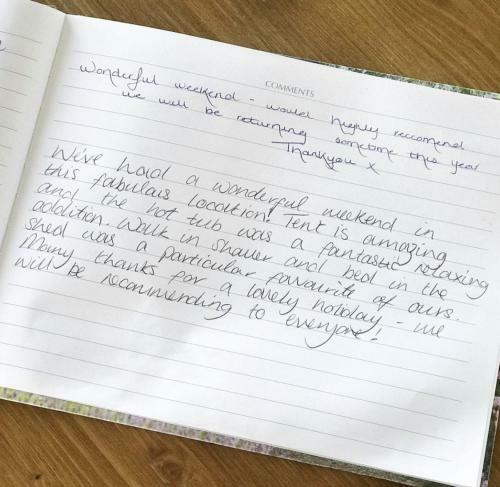 COMMENTS
Wonderful weekend - would highly reccomend
we will be returning sometime this year
Thankyou x
We've had a wonderful weekend in
this fabulous location! Tent is amazing
and the hot tub was a fantastic relaxing
addition. Walk in shower and bed in the
shed was a particular favourite of ours.
Many thanks for a lovely holiday - we
will be recommending to everyone!